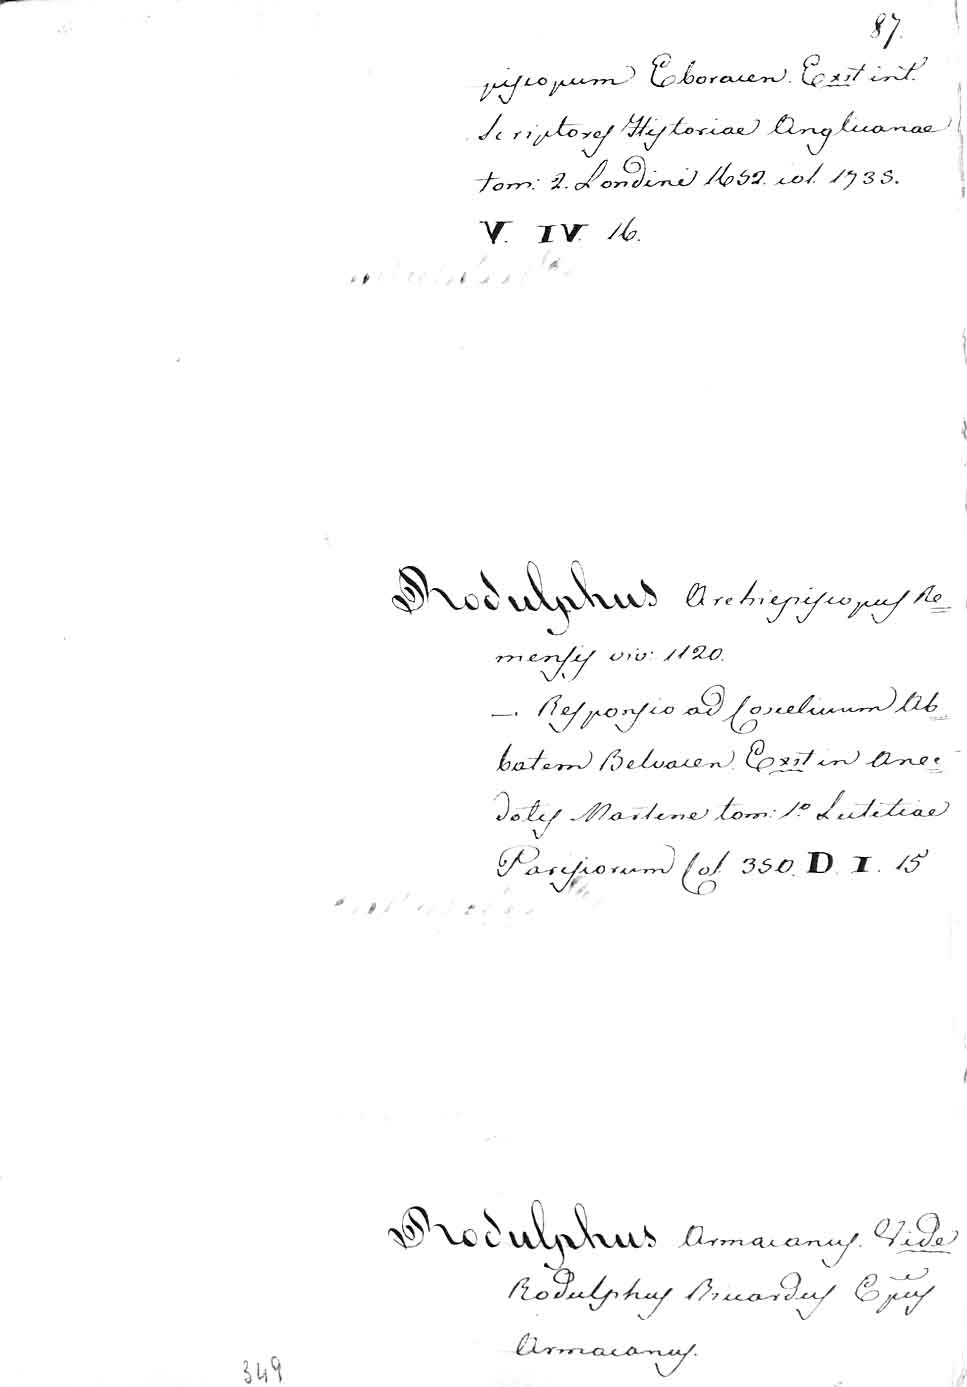 87.
piscopum Eboracen. Exit int.
Scriptores Historiae Anglicanae
tom: 2. Londini 1652. col. 1735.
V. IV. 16.
Rodulphus Archiepiscopus Re=
mensis viv: 1120.
—. Responsio ad Coscelinum Ab=
batem Belvacen. Exit in Anec=
dotis Martene tom: 1.º Lutetiae
Parisiorum Col. 350. D. I. 15
Rodulphus Armacanus. Vide
Rodulphus Ricardus Epus
Armacanus.
349